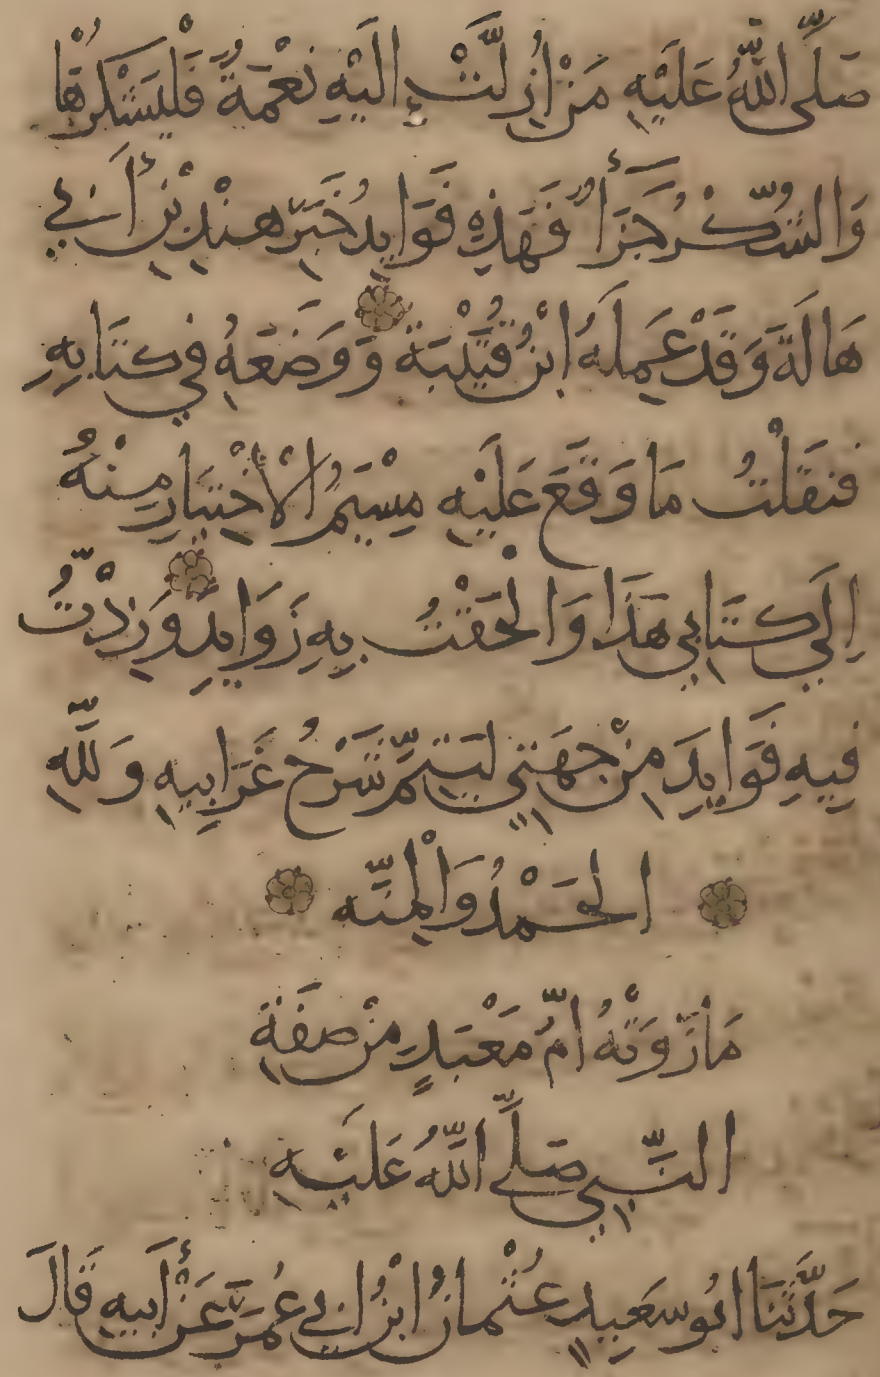 صَلَّى اللَّهُ عَلَيْهِ مَنْ اُزِلَّتْ إِلَيْهِ نِعْمَةٌ فَلْيَشْكُرْهَا
وَالشُّكْرُ جَزَأٌ فَهَذِهِ فَوَايِدُ خَبَرِ هِنْدِ بْنِ أَبِي
هَالَةَ وَقَدْ عَمِلَهُ ابْنُ قُتَيْبَةَ وَوَضَعَهُ فِي كِتَابِهِ
فنَقَلْتُ مَا وَقَعَ عَلَيْهِ مِيْسَمُ الْأخْتِيَارِ مِنْهُ
اِلَى كِتَابِي هَذَا وَالْحَقْتُ بِهِ زَوَايِدَ وَزِدْتُ
فِيهِ فَوَايِدَ مِنْ جِهَتِي لِيَتِمَّ شَرْحُ غَرَايِبِهِ وَلِلَّهِ
الحَمْدُ وَالْمِنَّه
مَا رَوَتْهُ امُّ مَعْبَدٍ مِنْ صِفَةِ
النَّبِي صَلَّى اللَّهُ عَلَيْهِ
حَدَّثَنَا ابُو سَعِيدٍ عُثْمَانُ ابْنُ ابِي عُمَرَ عَنْ أَبِيهِ قَالَ